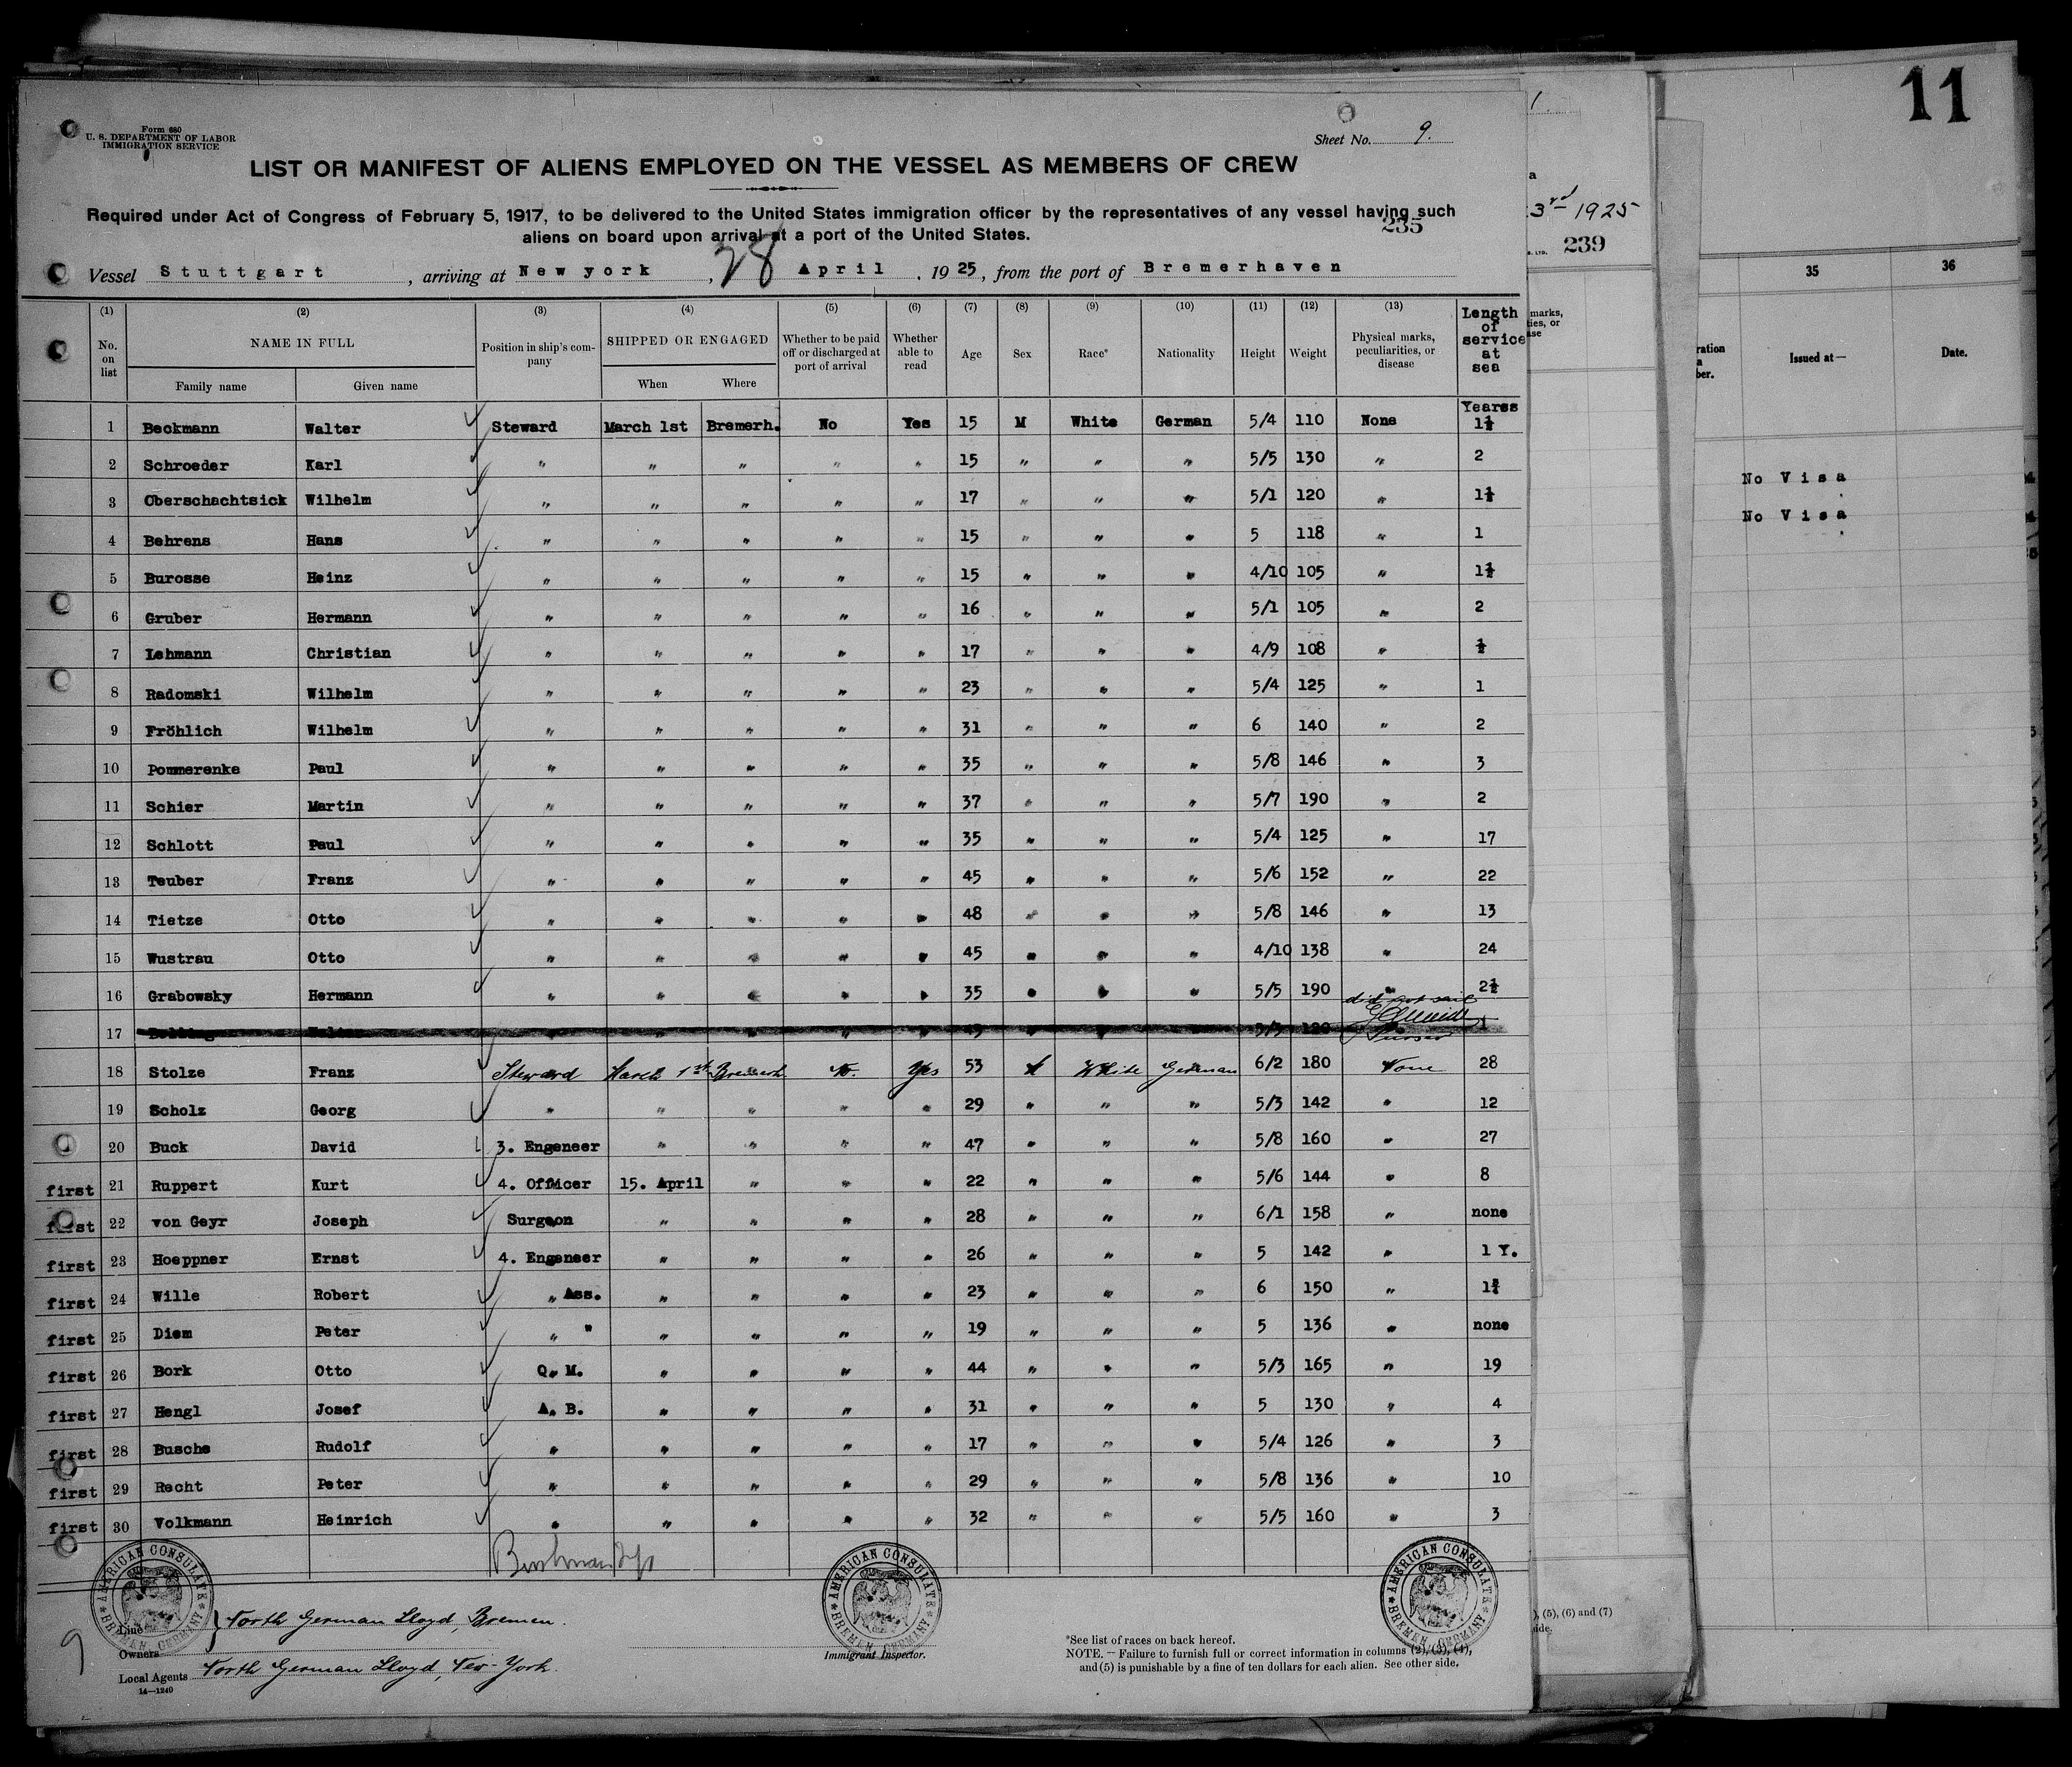 11
Form 680
U. S. DEPARTMENT OF LABOR
IMMIGRATION SERVICE
Sheet No. 9.
LIST OR MANIFEST OF ALIENS EMPLOYED ON THE VESSEL AS MEMBERS OF CREW
Required under Act of Congress of February 5, 1917, to be delivered to the United States immigration officer by the representatives of any vessel having such
aliens on board upon arrival at a port of the United States.
235
3rd 1925
239
Vessel Stuttgart, arriving at New york, 28 April, 1925, from the port of Bremerhaven
(1) (2) (3) (4) (5) (6) (7) (8) (9) (10) (11) (12) (13)
No. on list NAME IN FULL Family name Given name Position in ship's company SHIPPED OR ENGAGED When Where Whether to be paid off or discharged at port of arrival Whether able to read Age Sex Race* Nationality Height Weight Physical marks, peculiarities, or disease Length of service at sea
Years
1 Beckmann Walter Steward March 1st Bremerh. No Yes 15 M White German 5/4 110 None
2 Schroeder Karl " " " " " 15 " " " 5/5 130 " 2
3 Oberschachtsick Wilhelm " " " " " 17 " " " 5/1 120 "
4 Behrens Hans " " " " " 15 " " " 5 118 " 1
5 Burosse Heinz " " " " " 15 " " " 4/10 105 "
6 Gruber Hermann " " " " " 16 " " " 5/1 105 " 2
7 Lehmann Christian " " " " " 17 " " " 4/9 108 " ½
8 Radomski Wilhelm " " " " " 23 " " " 5/4 125 " 1
9 Fröhlich Wilhelm " " " " " 31 " " " 6 140 " 2
10 Pommerenke Paul " " " " " 35 " " " 5/8 146 " 3
11 Schier Martin " " " " " 37 " " " 5/7 190 " 2
12 Schlott Paul " " " " " 35 " " " 5/4 125 " 17
13 Teuber Franz " " " " " 45 " " " 5/6 152 " 22
14 Tietze Otto " " " " " 48 " " " 5/8 146 " 13
15 Wustrau Otto " " " " " 45 " " " 4/10 138 " 24
16 Grabowsky Hermann " " " " " 35 " " " 5/5 190 " 2½
did not sail
17
Purser
18 Stolze Franz Steward March 1st Bremerh. No. Yes 53 M White German 6/2 180 None 28
19 Scholz Georg " " " " " 29 " " " 5/3 142 " 12
20 Buck David 3. Engeneer " " " " 47 " " " 5/8 160 " 27
first 21 Ruppert Kurt 4. Officer 15. April " " " 22 " " " 5/6 144 " 8
first 22 von Geyr Joseph Surgeon " " " " 28 " " " 6/1 158 " none
first 23 Hoeppner Ernst 4. Engeneer " " " " 26 " " " 5 142 " 1 Y.
first 24 Wille Robert " Ass. " " " " 23 " " " 6 150 "
first 25 Diem Peter " " " " " " 19 " " " 5 136 " none
first 26 Bork Otto Q. M. " " " " 44 " " " 5/3 165 " 19
first 27 Hengl Josef A. B. " " " " 31 " " " 5 130 " 4
first 28 Busche Rudolf " " " " " 17 " " " 5/4 126 " 3
first 29 Recht Peter " " " " " 29 " " " 5/8 136 " 10
first 30 Volkmann Heinrich " " " " " 32 " " " 5/5 160 " 3
AMERICAN CONSULATE BREMEN, GERMANY
AMERICAN CONSULATE BREMEN, GERMANY
AMERICAN CONSULATE BREMEN, GERMANY
9
Line
Owners
North German Lloyd, Bremen.
Local Agents North German Lloyd, New-York.
14—1240
Immigrant Inspector.
*See list of races on back hereof.
NOTE. — Failure to furnish full or correct information in columns (2), (3), (4),
and (5) is punishable by a fine of ten dollars for each alien. See other side.
marks,
ties, or
), (5), (6) and (7)
ide.
35 36
Issued at— Date.
No Visa
No Visa